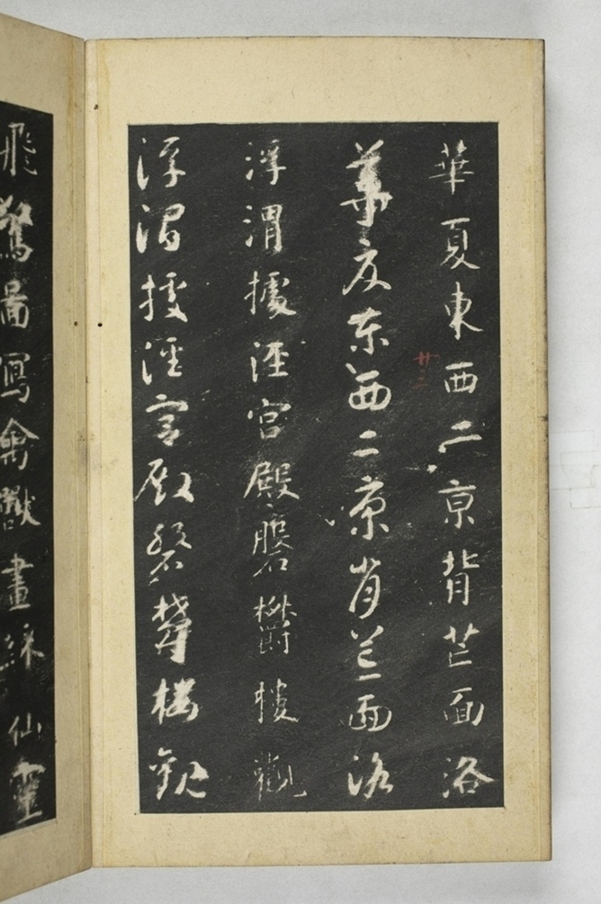 華夏東西二京背芒面洛
廿三
華夏東西二京背芒面洛
浮渭據涇宮殿磐欝樓觀
浮渭據涇宮殿磐欝樓觀
飛驚圖寫禽獸畫綵仙靈